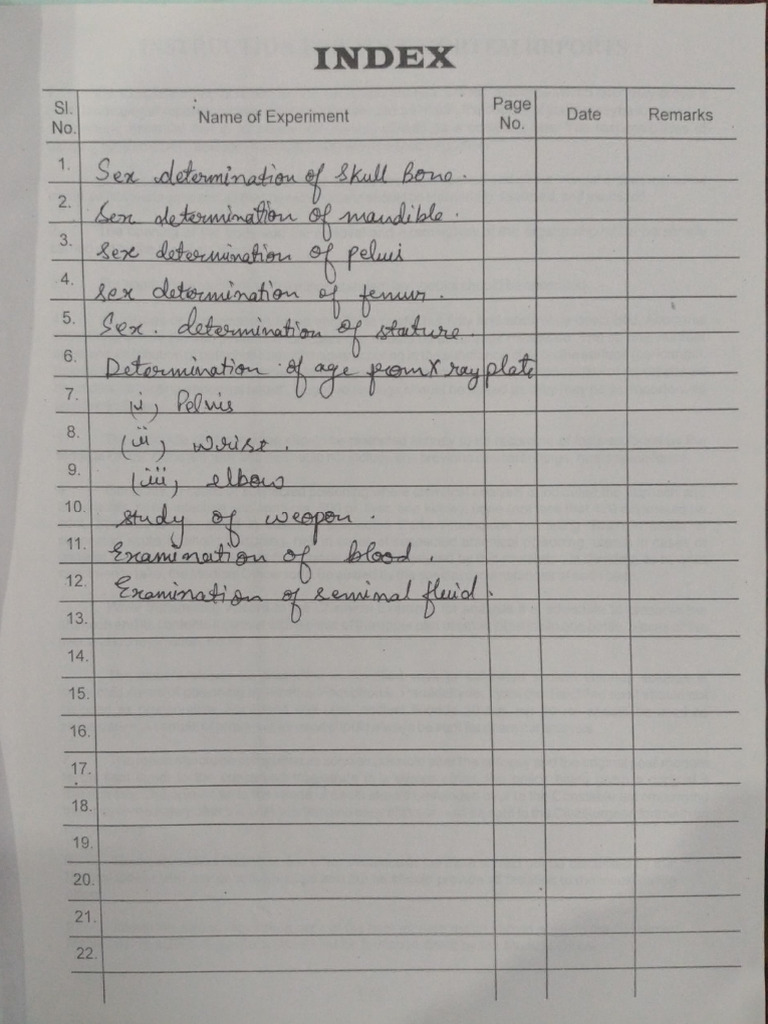 INDEX
Sl. No. Name of Experiment Page No. Date Remarks
1. Sex determination of skull Bone.
2. Sex determination of mandible.
3. Sex determination of pelvis
4. Sex determination of femur.
5. Sex. determination of stature.
6. Determination of age from X ray plate
7. (i) Pelvis
8. (ii) wrist.
9. (iii) elbow
10. study of weapon.
11. Examination of blood.
12. Examination of seminal fluid.
13.
14.
15.
16.
17.
18.
19.
20.
21.
22.